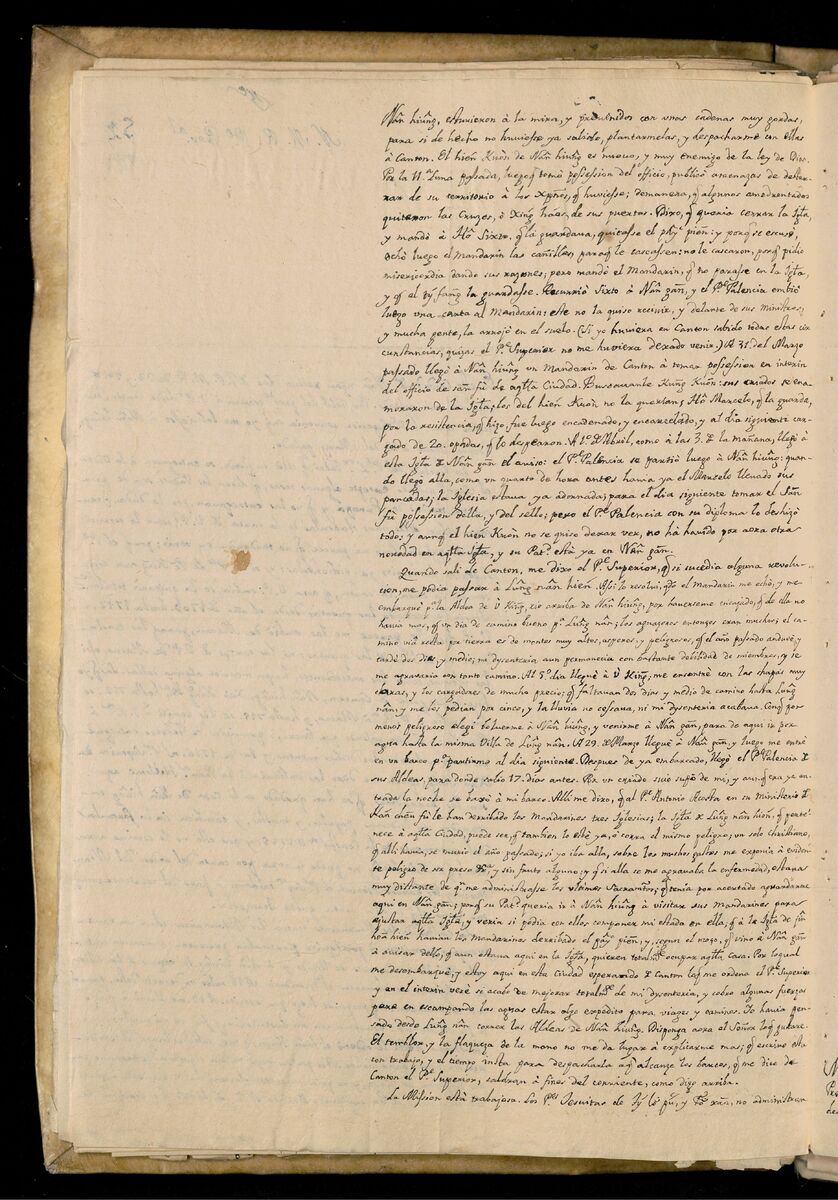 Nân hiûng, estuvieron à la mira, y prevenidos con unas cadenas muy gordas,
para si de hecho no huviesse ya salido, plantarmelas, y despacharme con ellas
à Canton. El hién Kuōn de Nân hiûng es nuevo, y muy enemigo de la ley de Dios.
Por la 11.ª Luna passada, luego q̃ tomò possession del officio, publicò amenazas de dester-
rar de su territorio à los Xp̃nos, q̃ huviesse; demanera, q̃ algunos amedrentados
quitaron las Cruzes, ò Xíng háos, de sus puertas. Dixo, q̃ queria cerrar la Igl.ª,
y mandò à Hô Sixto, q̃ la guardava, quitasse el piĕn: y porq̃ se escusò,
echò luego el Mandarin las cañillas, paraq̃ le cascassen: no le cascaron, porq̃ pidio
misericordia dando sus razones; pero mandò el Mandarin, q̃ no parasse en la Igl.ª,
y q̃ el tý fang la guardasse. Recurriò Sixto à Nân gān, y el P.e Palencia embiò
luego una carta al Mandarin: este no la quiso recivir, y delante de sus Ministros,
y mucha gente, la arrojò en el suelo. (Si yo huviera en Canton sabido todas estas cir
cunstancias, quizas el P.e Superior no me huviera dexado venir.) A 31. del Marzo
passado llegò à Nân hiûng un Mandarin de Canton à tomar possession en interin
del officio de sān fù de aq̃lla Ciudad. Buscavanle Kūng Kuòn: sus criados se ena-
moraron de la Igl.ª; los del hién Kuōn no la querian; Hô Marcelo, q̃ la guarda,
por la resistencia, q̃ hizo fue luego encadenado, y encarcelado, y al dia siguiente car-
gado de 20. açotes, q̃ lo despearon. A 1.º d'Abril, como à las 3. de la mañana, llegò à
esta Igl.ª de Nân gān el aviso: el P.e Palencia se partiò luego à Nân hiûng: quan-
do llegò alla, como un quarto de hora antes havia ya el Marcelo llevado sus
pancadas; la Iglesia estava ya adornada; para el dia siguiente tomar el sān
fù possession della, y del sello; pero el P.e Palencia con su diploma lo deshizò
todo; y aunq̃ el hién Kuōn no se quiso dexar ver, no hà havido por aora otra
novedad en aq̃lla Igl.ª, y su Pat.d està ya en Nân gān.
Quando sali de Canton, me dixo el P.e Superior, q̃ si sucedia alguna revolu-
cion, me podia passar à Lûng nân hién. Assi lo resolvi, q̃do el Mandarin me echò, y me
embarquè p.ª la Aldea de Ù King, rio arriba de Nân hiûng, por haverseme encajado, q̃ de ella no
havia mas, q̃ un dia de camino bueno p.ª Lûng nân; los aguaceros entonzes eran muchos; el ca-
mino via recta por tierra es de montes muy altos, asperos, y peligrosos, q̃ el año passado anduve, y
tardè dos dias, y medio; mi dysenteria aun permanecia con bastante debilidad de miembros, y se
me agravaria con tanto camino. Al 5.º dia lleguè à Ù King, me encontrè con las chapas muy
charas, y los cargadores de mucho precio; q̃ faltavan dos dias y medio de camino hasta Lûng
nân, y me los pedian por cinco, y la lluvia no cessava, ni mi dysenteria acabava. Conq̃ por
menos peligroso elegi bolverme à Nân hiûng, y venirme à Nân gān, para de aqui ir por
agua hasta la misma Villa de Lûng nân. A 29. de Marzo lleguè à Nân gān, y luego me entrè
en un barco p.ª partirme al dia siguiente. Despues de ya embarcado, llegò el P.e Palencia de
sus Aldeas, para donde saliò 17. dias antes. Por un criado suio supo de mi, y aunq̃ era ya en-
trada la noche se baxò à mi barco. Alli me dixo, q̃ al P.e Antonio Acosta en su Ministerio de
Kán cheū fù le han derribado los Mandarines tres Iglesias; la Igl.ª de Lûng nân hién, q̃ perte-
nece à aq̃lla Ciudad, puede ser, q̃ tambien lo estè ya, ò corra el mismo peligro; un solo christiano,
q̃ alli havia, se muriò el año passado; si yo iba alla, sobre los muchos gastos me exponia à eviden-
te peligro de ser preso &c.ª y sin fruto alguno; y q̃ si alla se me agravaba la enfermedad, estava
muy distante de q̃ me administrasse los ultimos Sacram.tos; q̃ tenia por acertado aguardarme
aqui en Nân gān; porq̃ su Pat.d queria ir à Nân hiûng à visitar sus Mandarines para
ajustar aq̃lla Igl.ª, y veria si podia con ellos componer mi estada en ella, q̃ à la Igl.ª de jîn
hoá hién havian los Mandarines derribado el piĕn, y, segun el mozo, q̃ vino à Nân gān
à avisar dello, q̃ aun estava aqui en la Igl.ª, quieren totalm.te ocupar aq̃lla Casa. Por loqual
me desembarquè, y estoy aqui en esta Ciudad esperando de Canton loq̃ me ordena el P.e Superior
y en el interin verè si acabo de mejorar totalm.te de mi dysenteria, y cobro algunas fuerzas
para en escampando las aguas estar algo expedito para viages y caminos. Yo havia pen-
sado, desde Lûng nân correr las Aldeas de Nân hiûng. Disponga aora el Señor loq̃ gustare.
El temblor, y la flaqueza de la mano no me dà lugar à explicarme mas; q̃ escrivo esta
con trabajo, y el tiempo insta para despacharla à q̃ alcanze los barcos, q̃ me dize de
Canton el P.e Superior, saldran à fines del corriente, como digo arriba.
La Mission està trabajosa. Los P.es Jesuitas de y xān, no administran